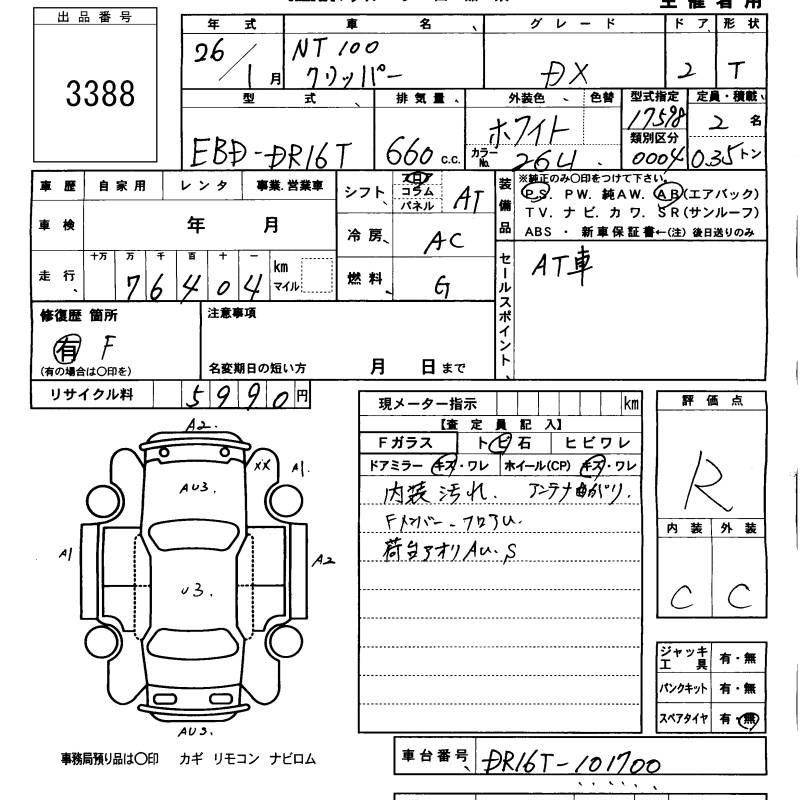 主催者用
出品番号 3388
年式 車名 グレード ドア 形状
26/1月 NT100クリッパー DX 2 T
型式 排気量 外装色 色替 型式指定 定員・積載
EBD-DR16T 660 c.c. ホワイト 17598 2名
類別区分
カラーNo. 26U 0004 0.35トン
車歴 自家用 レンタ 事業.営業車
車検 年 月
走行 十万 万 千 百 十 一
76404 km マイル
シフト フロア コラム パネル AT
冷房 AC
燃料 G
装備品 ※純正のみ〇印をつけて下さい
PS. PW. 純AW. AB(エアバック)
TV. ナビ. カワ. SR(サンルーフ)
ABS ・ 新車保証書←(注) 後日送りのみ
セールスポイント AT車
修復歴 箇所
有 F
(有の場合は〇印を)
注意事項
名変期日の短い方 月 日まで
リサイクル料 5990円
現メーター指示 km
【査定員記入】
Fガラス トビ石 ヒビワレ
ドアミラー キズ・ワレ ホイール(CP) キズ・ワレ
内装汚れ. アンテナ曲がり.
Fメンバー・フロアU.
荷台アオリAU.S
評価点
R
内装 外装
C C
A2.
XX A1.
AU3.
A1
A2
U3.
AU3.
ジャッキ工具 有・無
パンクキット 有・無
スペアタイヤ 有・無
事務局預り品は〇印 カギ リモコン ナビロム
車台番号 DR16T-101700